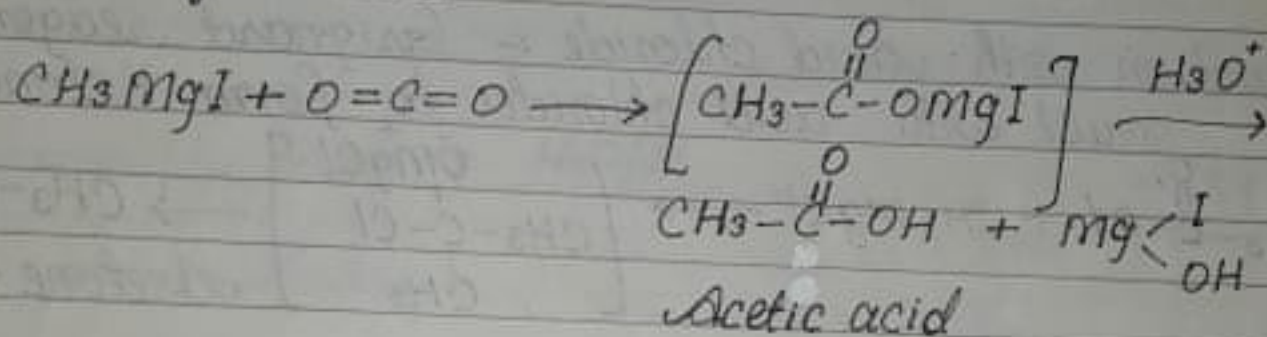 O
||
CH3MgI + O=C=O ⟶ [CH3-C-OMgI] H3O⁺ ⟶
O
||
CH3-C-OH + Mg< I
OH
Acetic acid